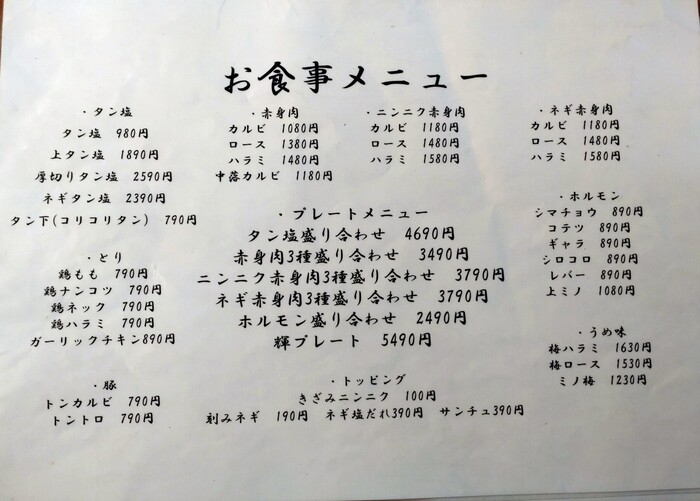 お食事メニュー
・タン塩
タン塩 980円
上タン塩 1890円
厚切りタン塩 2590円
ネギタン塩 2390円
タン下(コリコリタン) 790円
・赤身肉
カルビ 1080円
ロース 1380円
ハラミ 1480円
中落カルビ 1180円
・ニンニク赤身肉
カルビ 1180円
ロース 1480円
ハラミ 1580円
・ネギ赤身肉
カルビ 1180円
ロース 1480円
ハラミ 1580円
・とり
鶏もも 790円
鶏ナンコツ 790円
鶏ネック 790円
鶏ハラミ 790円
ガーリックチキン890円
・プレートメニュー
タン塩盛り合わせ 4690円
赤身肉3種盛り合わせ 3490円
ニンニク赤身肉3種盛り合わせ 3790円
ネギ赤身肉3種盛り合わせ 3790円
ホルモン盛り合わせ 2490円
輝プレート 5490円
・ホルモン
シマチョウ 890円
コテツ 890円
ギャラ 890円
シロコロ 890円
レバー 890円
上ミノ 1080円
・うめ味
梅ハラミ 1630円
梅ロース 1530円
ミノ梅 1230円
・豚
トンカルビ 790円
トントロ 790円
・トッピング
きざみニンニク 100円
刻みネギ 190円 ネギ塩だれ390円 サンチュ390円